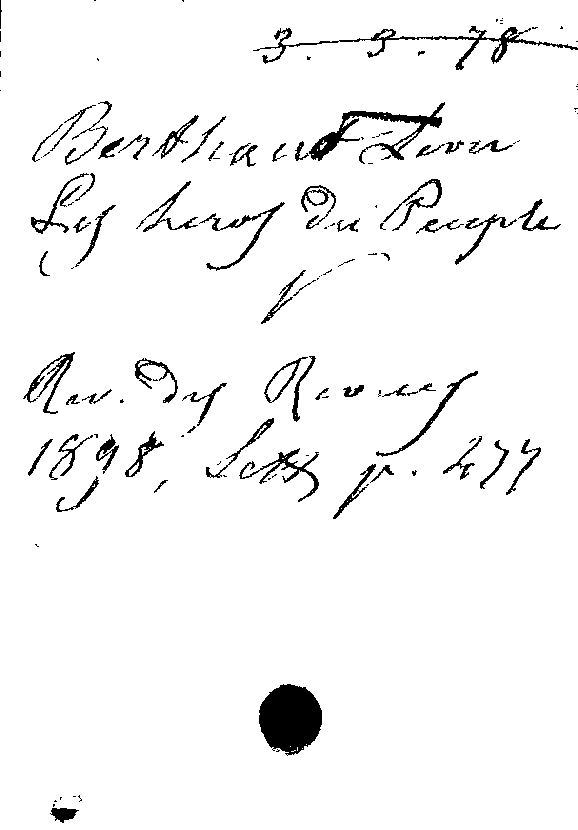 3. 3. 78
Berthaut Léon
Les heros du Peuple
V
Rev. des Revues
1898, Sett p. 477